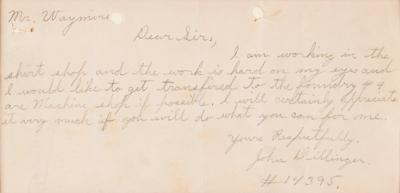 Mr. Waymire
Dear Sir,
I am working in the
shirt shop and the work is hard on my eyes and
I would like to get transfered to the foundry # 4
are Machine shop if possible. I will certainly appreciate
it very much if you will do what you can for me.
Yours Respectfully.
John Dillinger.
#14395.